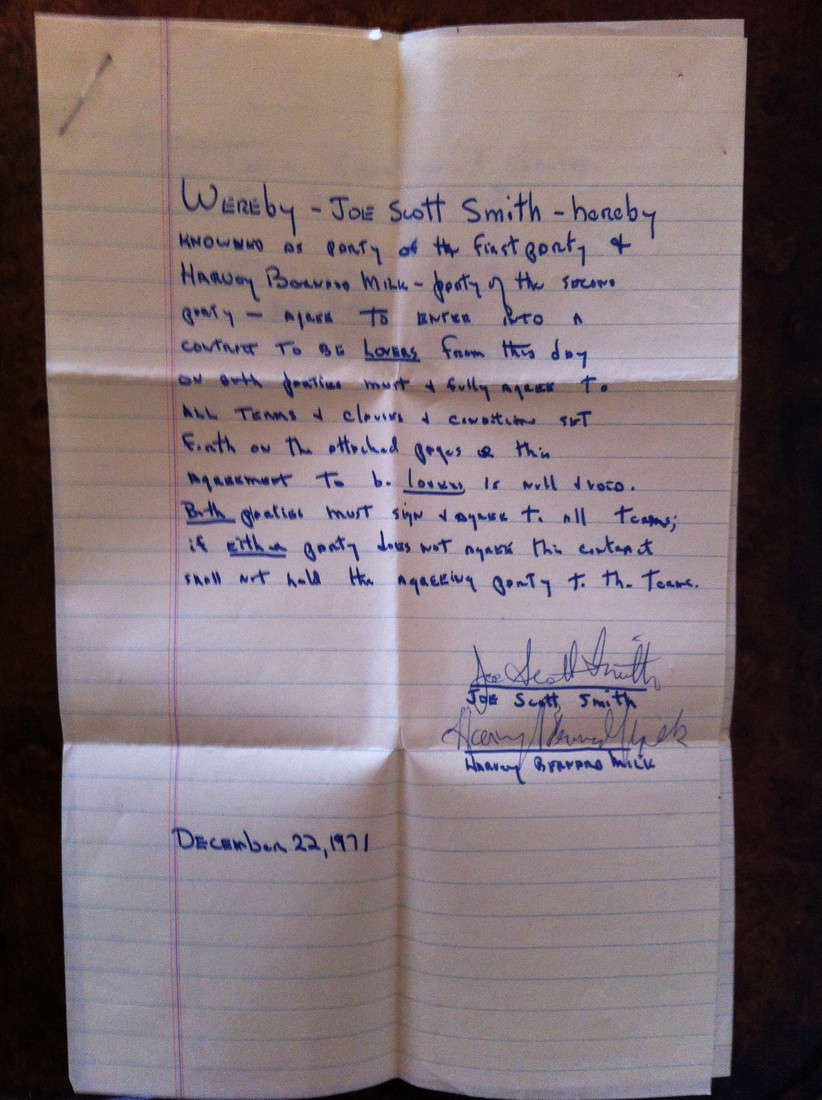 WEREBY - JOE Scott Smith - hereby
KNOWNED AS PARTY of the first party &
HARVEY BERNARD MILK - party of the SECOND
party - AGREE TO ENTER INTO A
CONTRACT TO BE LOVERS from this day
on both parties must & fully AGREE To
ALL TERMS & clauses & conditions SET
Forth on the attached pages or this
AGREEMENT To be lovers is null & VOID.
Both parties must sign & AGREE To all terms;
if EITHER party does not agree this contract
shall not hold the AGREEING party to the terms.
Joe Scott Smith
JOE Scott Smith
Harvey Bernard Milk
HARVEY BERNARD MILK
DECEMBER 22, 1971